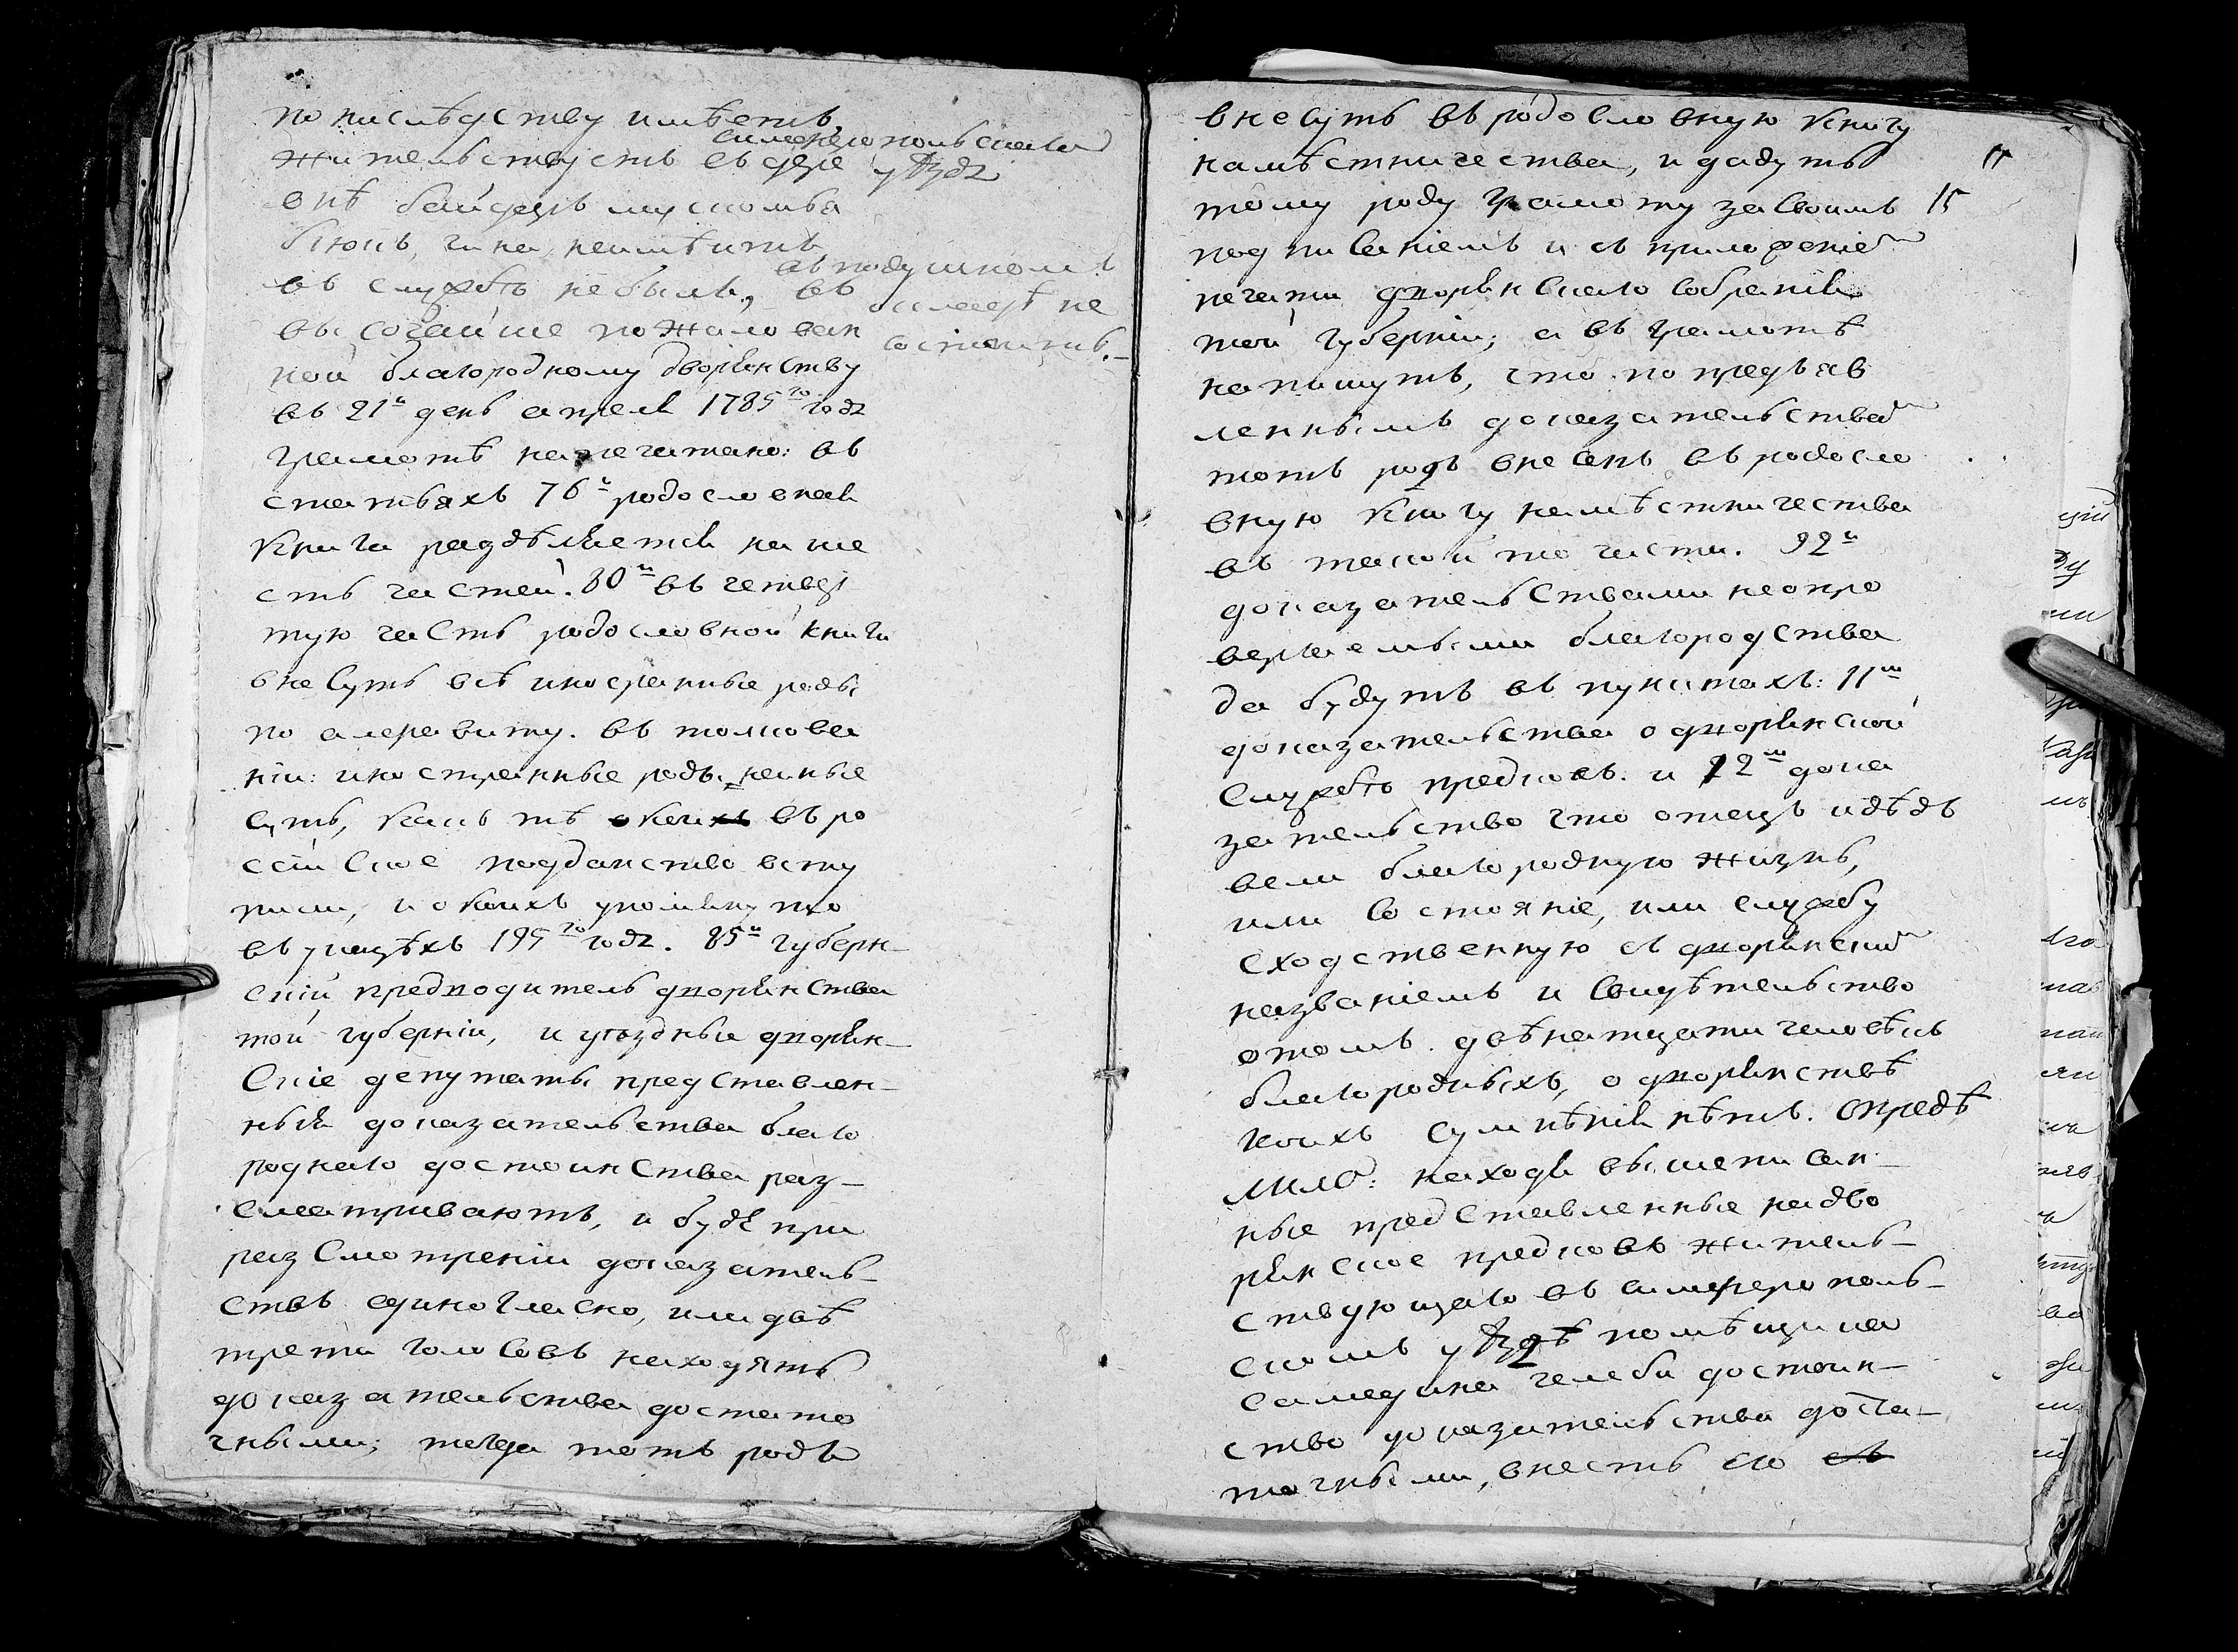 по нисл​ѣдству имѣетъ,
симферопольскаго
жительствуетъ въ дере уѣзда
внѣ байдаръ мускомья
бкюнь, чина неимѣитъ
въ подушномъ
въ службѣ небылъ, въ окладѣ не
высочайше пожалован состоитъ.
ной благородному дворянству
въ 21й день апреля 1785го года
грамотѣ напечатано: въ
статьяхъ 76й родословная
книга раздѣляется на ше
сть частей. 80й въ четвер
тую часть родословной книги
внесутъ всѣ иностранные роды
по алеравиту. въ толкова
ніи: иностранные роды, неиные
суть, какъ тѣ кои въ ро
ссійское подданство всту
пили, и о коихъ упомянуто
въ указѣхъ 195го года. 85й губерн-
скій предводитель дворянства
той губерніи, и уѣздные дворян-
скіе депутаты представлен-
ныя доказательства благо
роднаго достоинства раз-
сматриваютъ, и буде при
разсмотреніи доказатель-
ствъ единогласно, или двѣ
трети голосовъ находятъ
доказательства достато
чными; тогда тотъ родъ
внесутъ въ родословную книгу
намѣстничества, и дадутъ 11
тому роду грамоту за своимъ 15
подписаніемъ и съ приложеніем
печати дворянскаго собранія
той губерніи; а въ грамотѣ
напишутъ, что по предъяв
леннымъ доказательствам
тотъ родъ внесенъ въ родосло
вную книгу намѣстничества
въ такой то части. 92й
доказательствами неопро
вергаемыми благородства
да будутъ въ пунктахъ: 11м
доказательства о дворянской
службѣ предковъ. и 12м дока
зательство что отецъ и дѣдъ
вели благородную жизнь,
или состояніе, или службу
сходственную съ дворянским
названіемъ и свидѣтельство
о томъ двѣнатцати человѣкъ
благородныхъ, о дворянствѣ
коихъ сумнѣнія нѣтъ. опредѣ
лило: находя вышеписан-
ные представленные надво
рянское предковъ житель-
ствующаго въ симферополь-
скомъ уѣздѣ помѣщика
самедина челеби достоин-
ство доказательства доста-
точными, внесть его въ